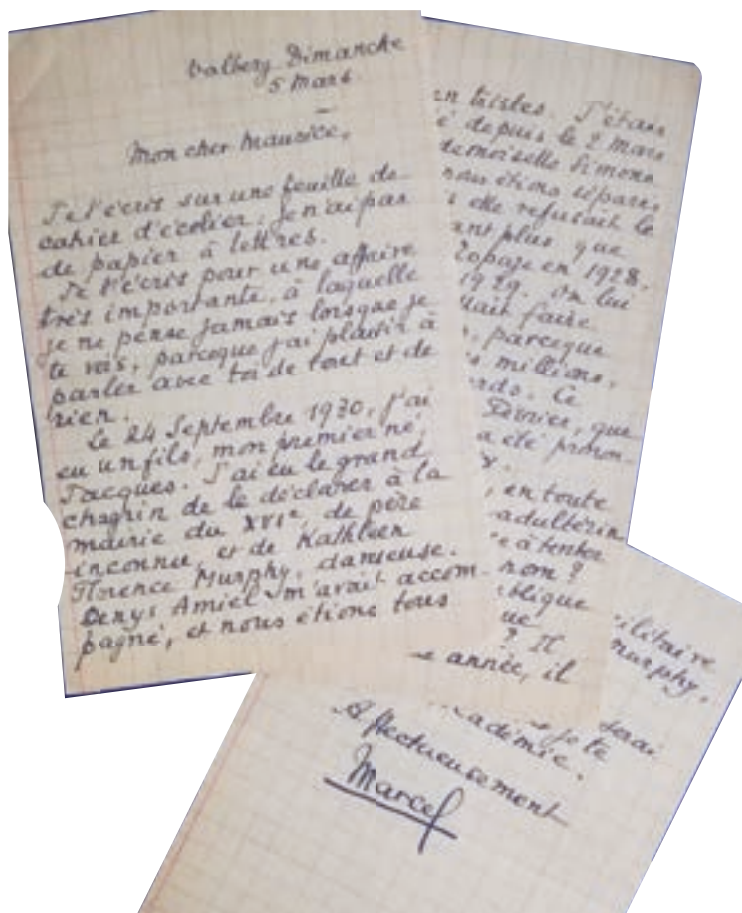 Valberg Dimanche
5 Mars.
Mon cher Maurice,
Je t'écris sur une feuille de
cahier d'écolier. Je n'ai pas
de papier à lettres.
Je t'écris pour une affaire
très importante, à laquelle
je ne pense jamais lorsque je
te vois, parceque j'ai plaisir à
parler avec toi de tout et de
rien.
Le 24 Septembre 1930, j'ai
eu un fils, mon premier né,
Jacques. J'ai eu le grand
chagrin de le déclarer à la
mairie du XVIe, de père
inconnu, et de Kathleen
Florence Murphy, danseuse.
Denys Amiel m'avait accom-
pagné, et nous étions tous
en tristes. J'étais
é depuis le 2 mars
demoiselle Simone
nous étions séparés
s elle refusait le
ant plus que
Topaze en 1928,
1929. On lui
llait faire
, parceque
s millions,
rds. Ce
Dernier, que
a été pronon-
, en toute
adultérin
e à tenter
nom ?
blique
ue
? Il
e année, il
ilitaire
Murphy.
serai
je te
cadémie.
Affectueusement
Marcel